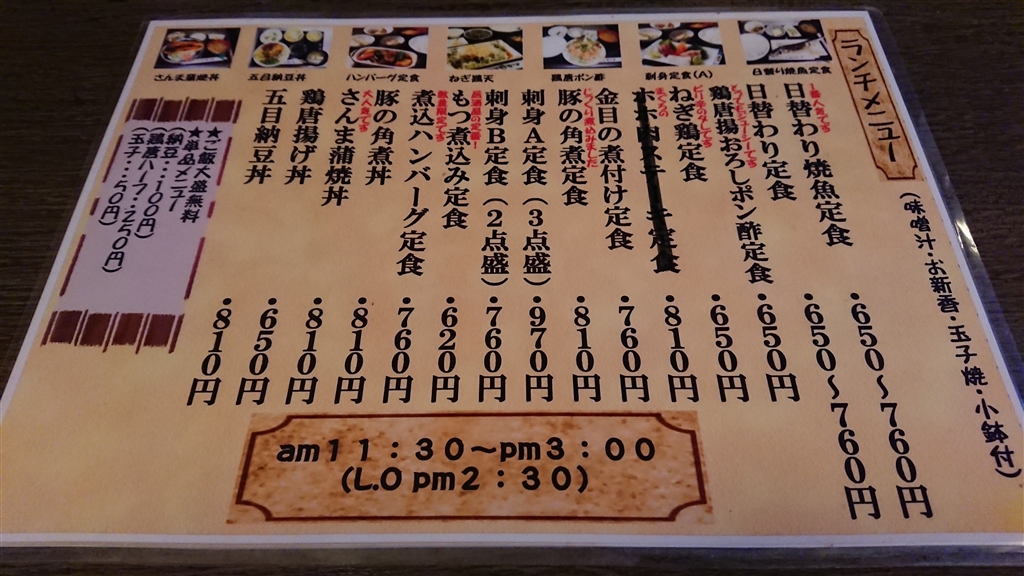 ランチメニュー
（味噌汁・お新香・玉子焼・小鉢付）
さんま蒲焼丼
五目納豆丼
ハンバーグ定食
ねぎ鶏天
鶏唐ポン酢
刺身定食(A)
日替り焼魚定食
一番人気です
日替わり焼魚定食・650～760円
日替わり定食・650～760円
とってもジューシーです
鶏唐揚おろしポン酢定食・650円
ピリ辛のタレです
ねぎ鶏定食・650円
まぐろの
ホホ肉ステーキ定食・810円
金目の煮付け定食・760円
じっくり煮込みました
豚の角煮定食・810円
刺身A定食（3点盛）・970円
刺身B定食（2点盛）・760円
居酒屋の定番!
もつ煮込み定食・620円
数量限定です
煮込ハンバーグ定食・760円
豚の角煮丼・810円
大人気です
さんま蒲焼丼・810円
鶏唐揚げ丼・650円
五目納豆丼・810円
★ご飯大盛無料
★単品メニュー
（納豆・・100円）
（鶏唐ハーフ・・250円）
（玉子・・50円）
am11：30～pm3：00
(L.O pm2：30)